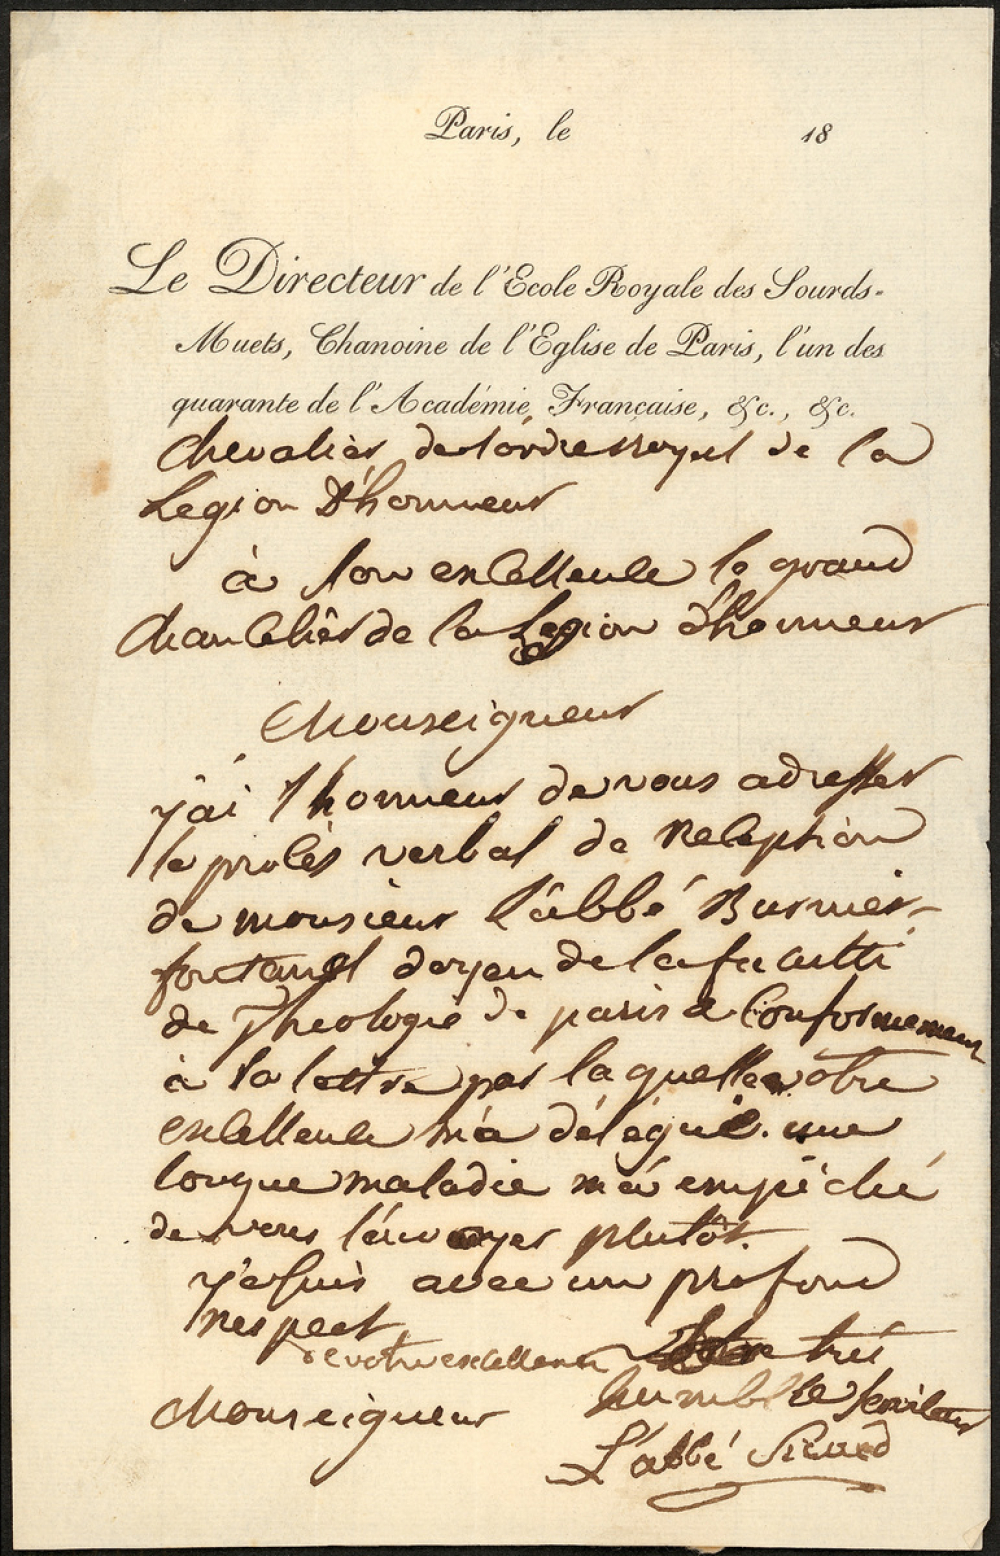 Paris, le 18
Le Directeur de l'Ecole Royale des Sourds-
Muets, Chanoine de l'Eglise de Paris, l'un des
quarante de l'Académie Française, &c., &c.
chevalier de l'ordre royal de la
Legion D'honneur
à son excellence le grand
chancelier de la Legion d'honneur
Monseigneur
j'ai l'honneur de vous adresser
le procès verbal de reception
de monsieur l'abbé Burnier-
fontanel doyen de la faculté
de Theologie de paris & Conformement
à la lettre par laquelle votre
excellence m'a délégué. une
longue maladie m'a empêché
de vous l'envoyer plutôt.
je suis avec un profond
respect,
de votre excellence très
Monseigneur humble Serviteur
L'abbé Sicard